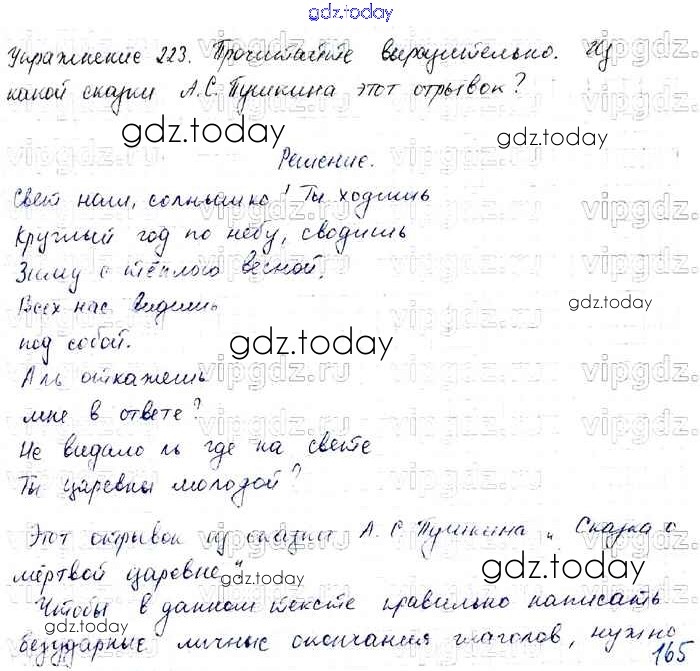 gdz.today
Упражнение 223. Прочитайте выразительно. Из
какой сказки А.С. Пушкина этот отрывок?
gdz.today
Решение.
Свет наш, солнышко! Ты ходишь
Круглый год по небу, сводишь
Зиму с тёплою весной,
Всех нас видишь
gdz.today
под собой.
gdz.today
Аль откажешь
мне в ответе?
Не видало ль где на свете
Ты царевны молодой?
Этот отрывок из сказки А. С. Пушкина „Сказка о
мёртвой царевне"
gdz.today
gdz.today
Чтобы в данном тексте правильно написать
безударные личные окончания глаголов, нужно
165